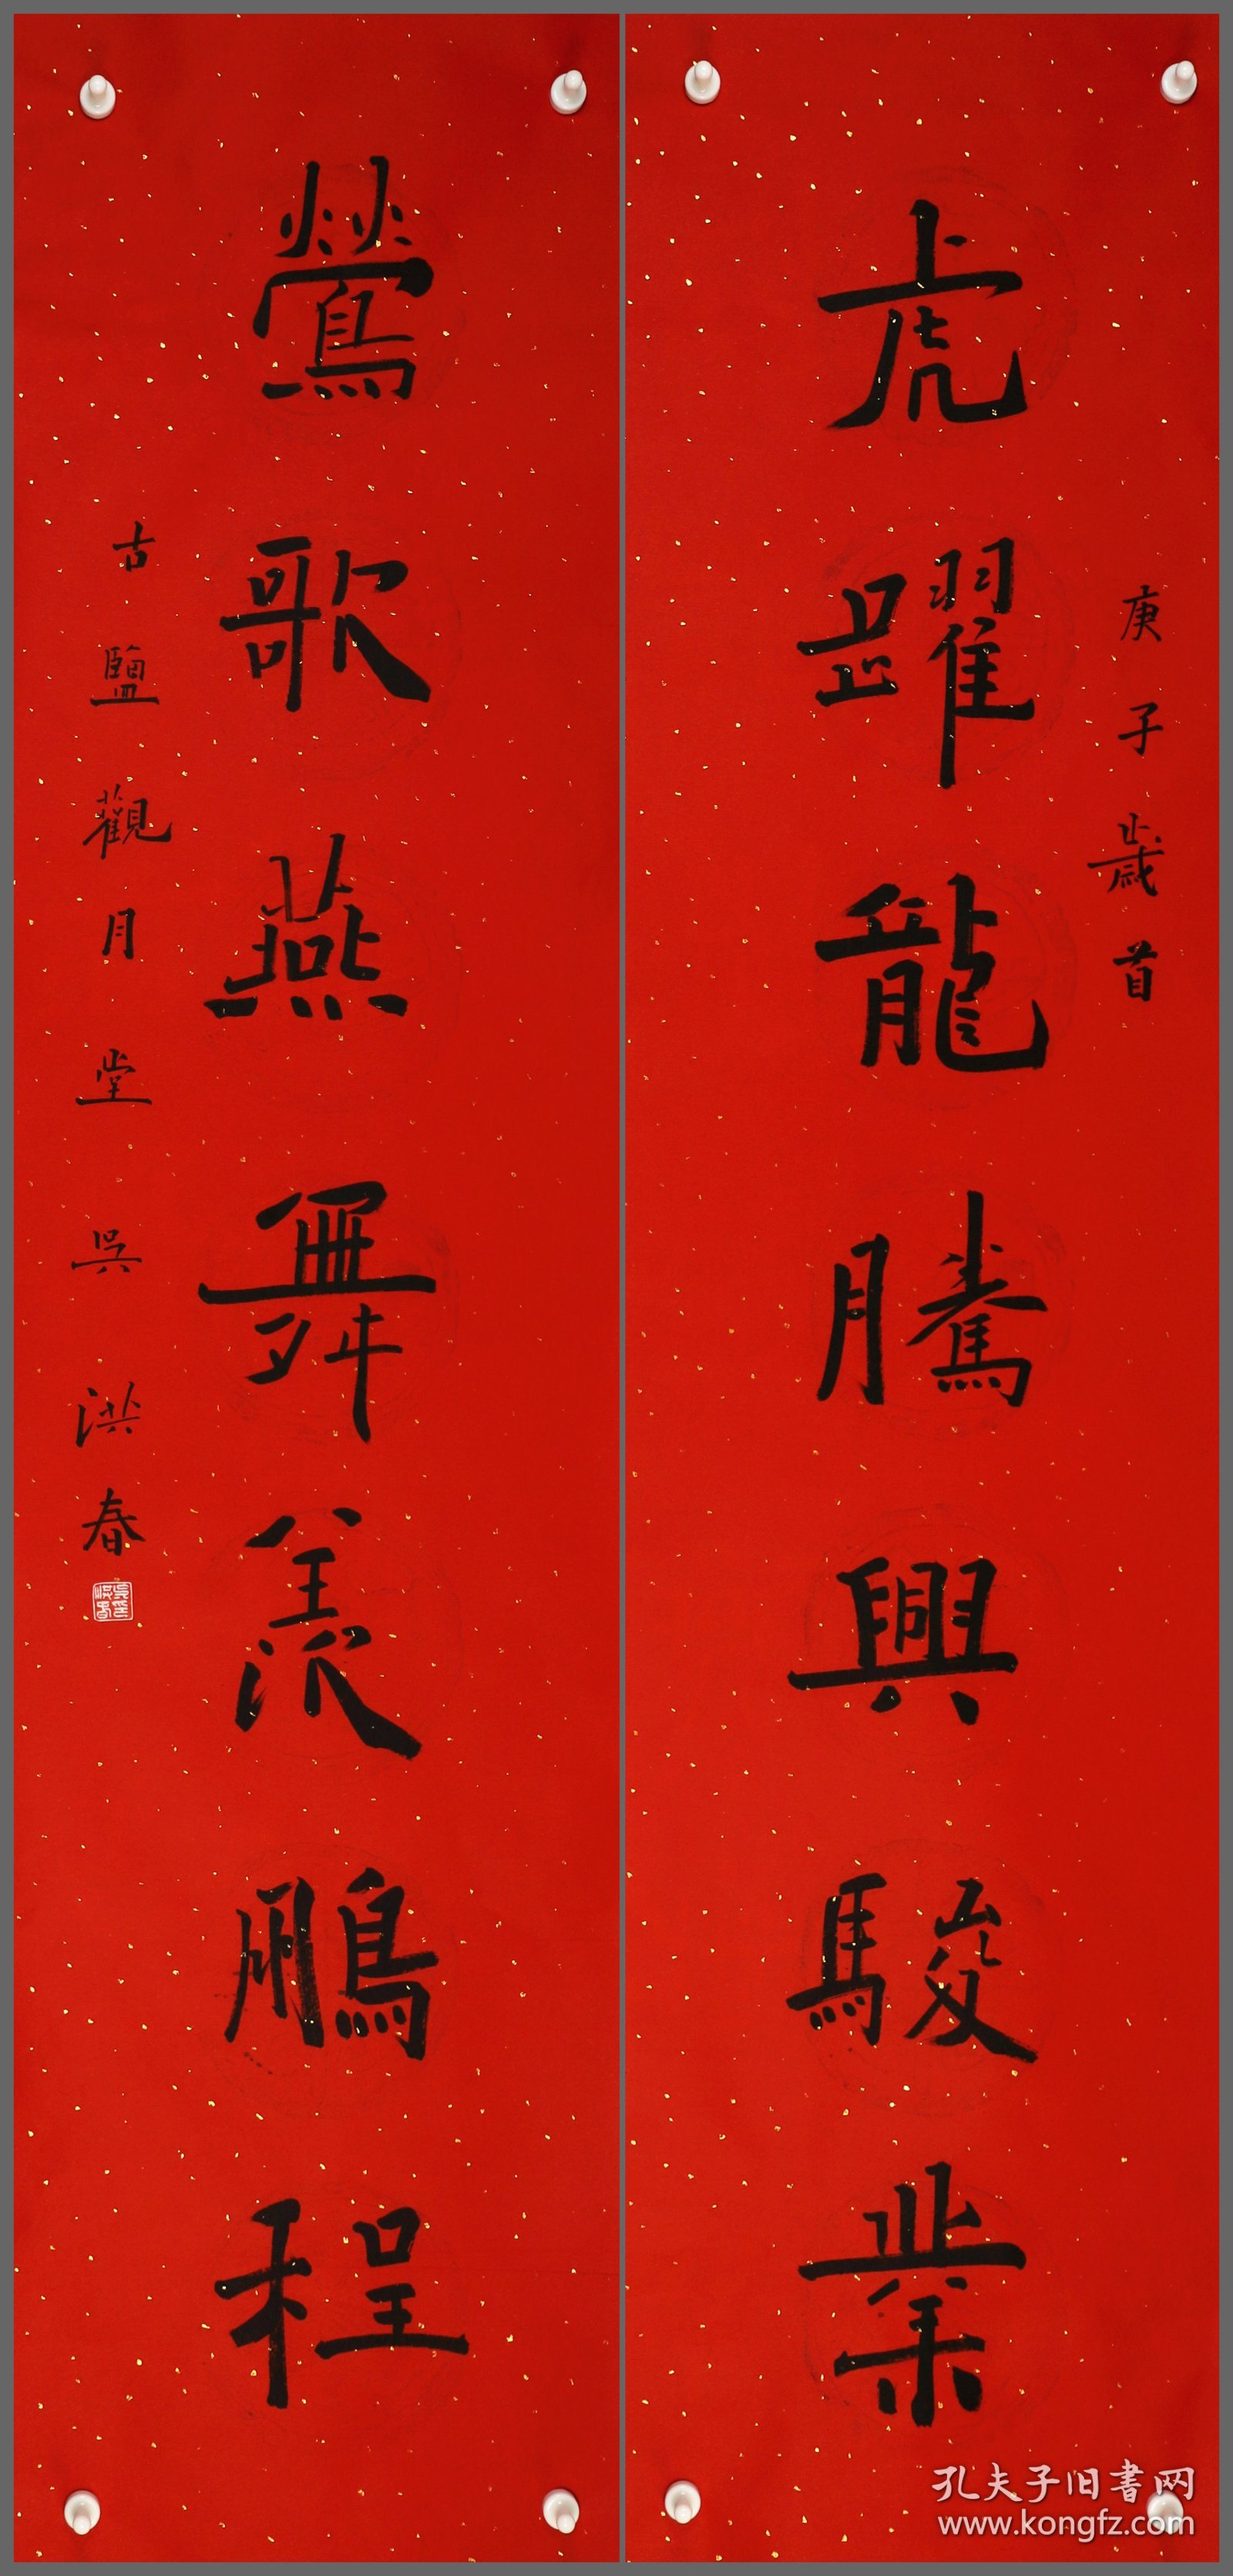 庚子歲首
虎躍龍騰興駿業
鶯歌燕舞羨鵬程
古鹽觀月堂 吳洪春
孔夫子旧書网
www.kongfz.com